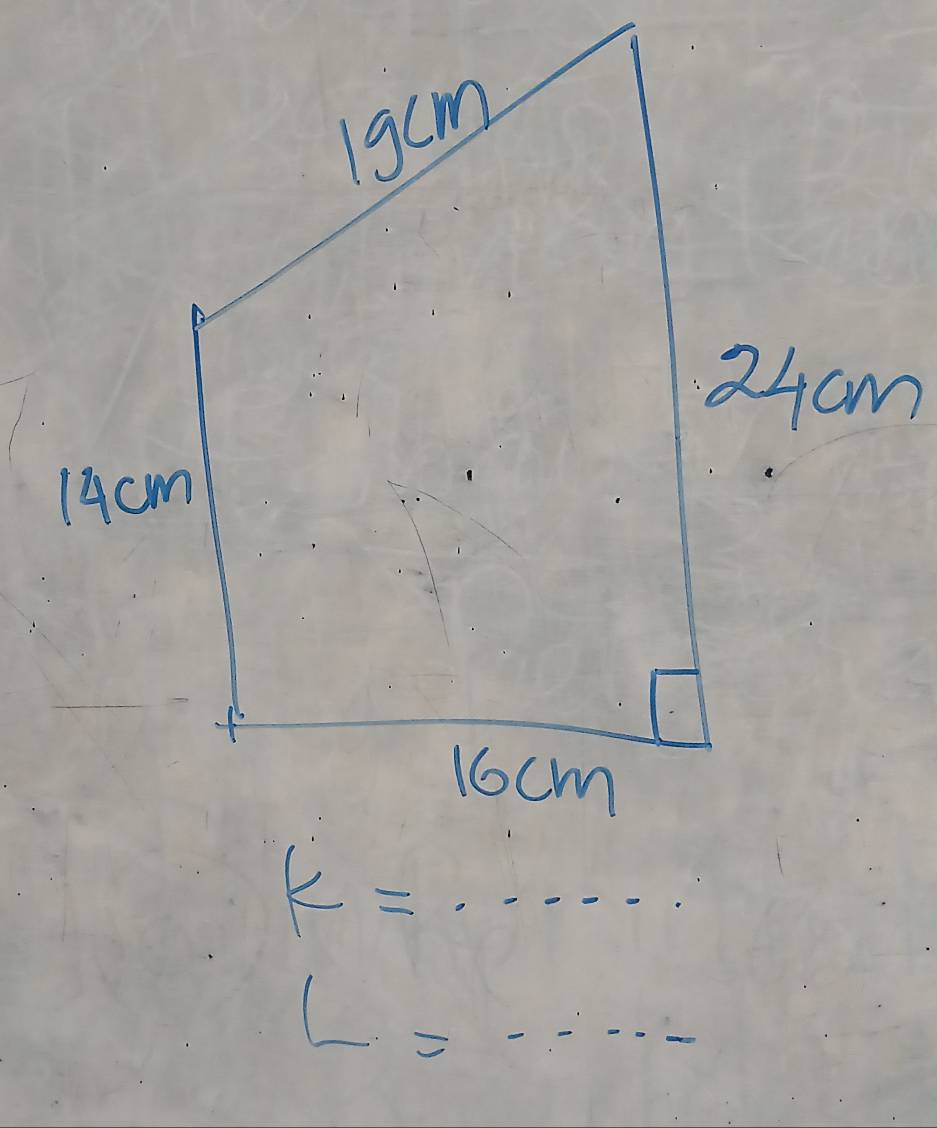 19cm
24cm
14cm
16cm
K = . - - - - - .
L = - - - - -